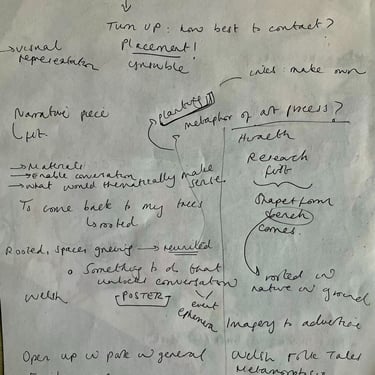 Turn up: how best to contact?
Placement!
→ visual representation
unies: make own
planting
metaphor of art process?
Narrative piece
Hiraeth
Research first
→ Materials
→ Enable conversation
→ what would thematically make sense
shapes form
bench
comes.
To come back to my trees
↳ rooted
Rooted, spaces, growing → reunited
Something to do that
unlocks conversation
rooted in
nature in ground
Welsh
[POSTER]
event
Ephemera
Imagery to advertise
Open up in park in general
Welsh Folk Tales
Metamorphosis